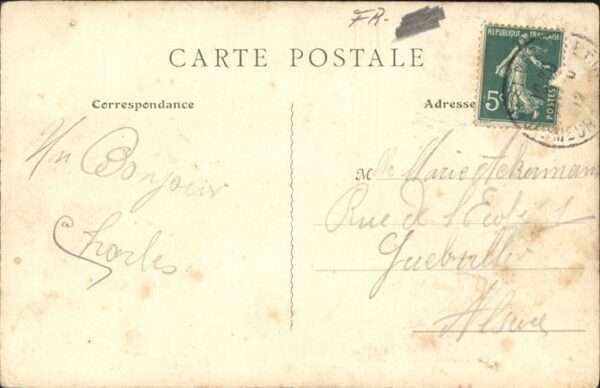 FR.
CARTE POSTALE
RÉPUBLIQUE FRANÇAISE
5c
POSTES
Correspondance
Adresse
Un Bonjour
Charles
Mlle Marie Ackermann
Rue de l'Ecole
Guebwiller
Alsace